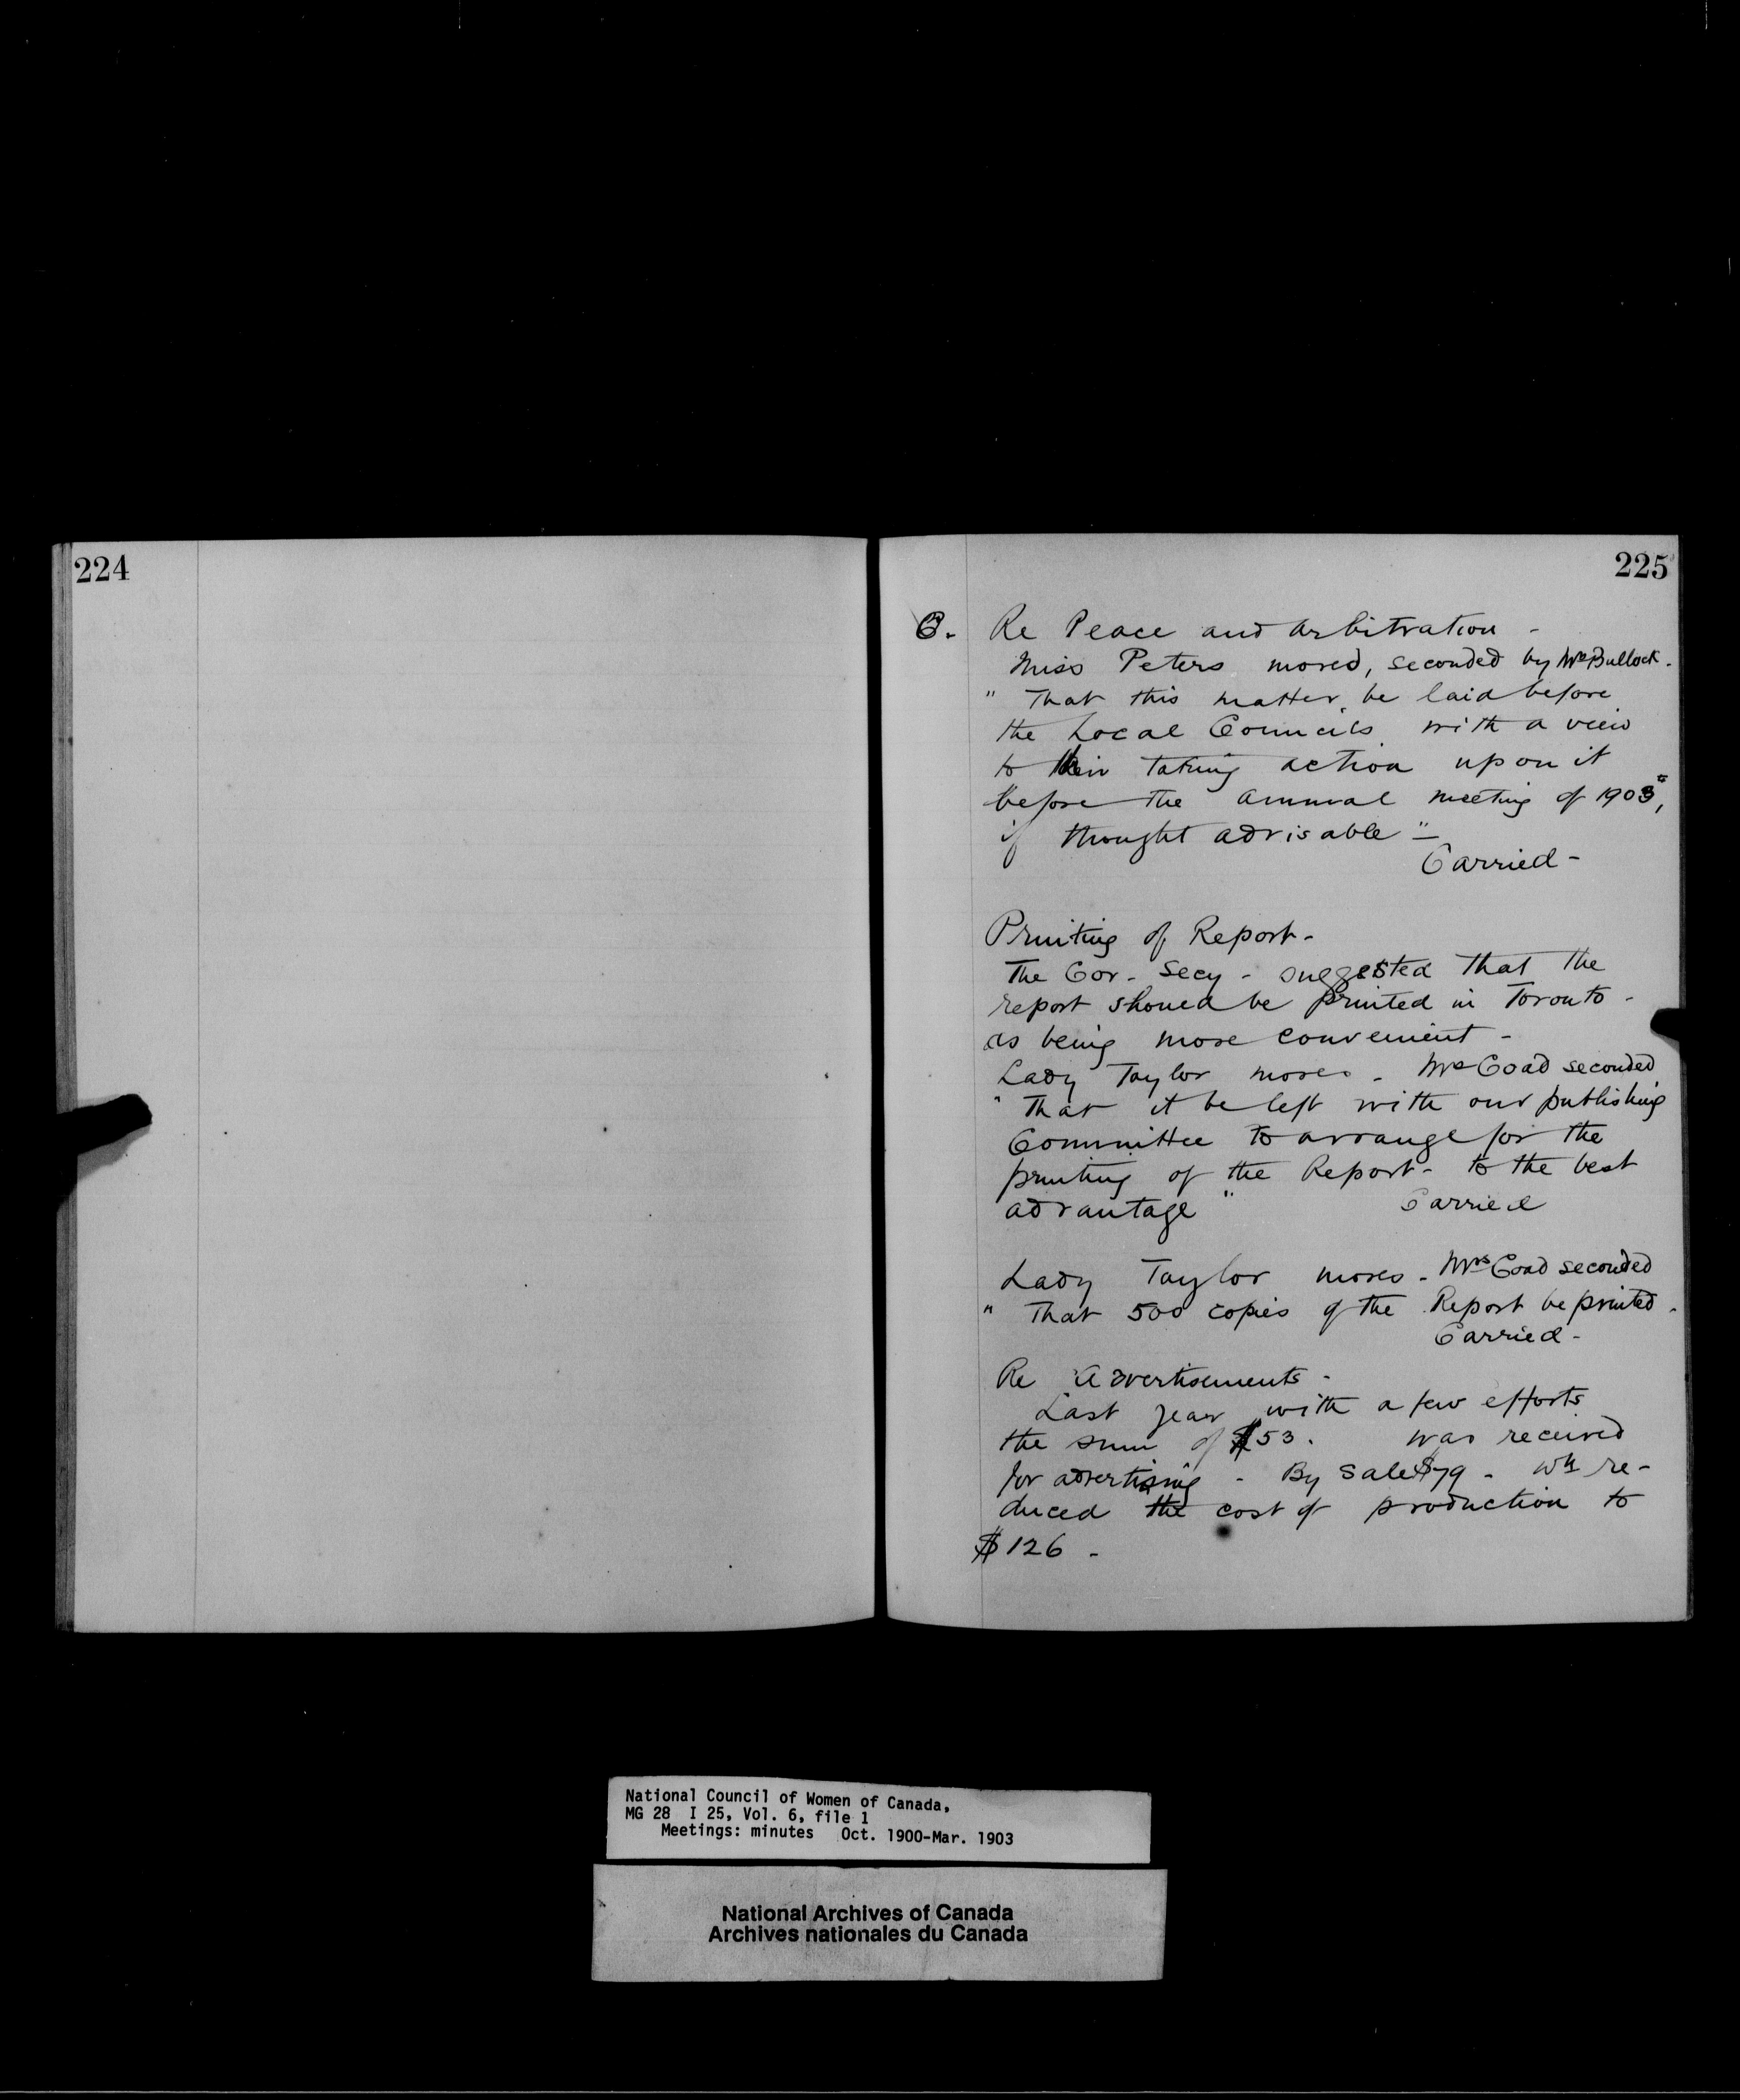 224
225
6. Re Peace and Arbitration -
Miss Peters moved, seconded by Mrs Bullock.
" That this matter be laid before
the Local Councils with a view
to their taking action upon it
before the annual meeting of 1903,
if thought advisable " -
Carried -
Printing of Report -
The Cor - Secy - suggested that the
report should be printed in Toronto -
as being more convenient -
Lady Taylor moves - Mrs Coad seconded
" That it be left with our publishing
Committee to arrange for the
printing of the Report - to the best
advantage " Carried
Lady Taylor moves - Mrs Coad seconded
" That 500 copies of the Report be printed -
Carried -
Re Advertisements -
Last year with a few efforts
the sum of $53. was received
for advertising - By sale $79 - wh re-
duced the cost of production to
$126 -
National Council of Women of Canada,
MG 28 I 25, Vol. 6, file 1
Meetings: minutes Oct. 1900-Mar. 1903
National Archives of Canada
Archives nationales du Canada